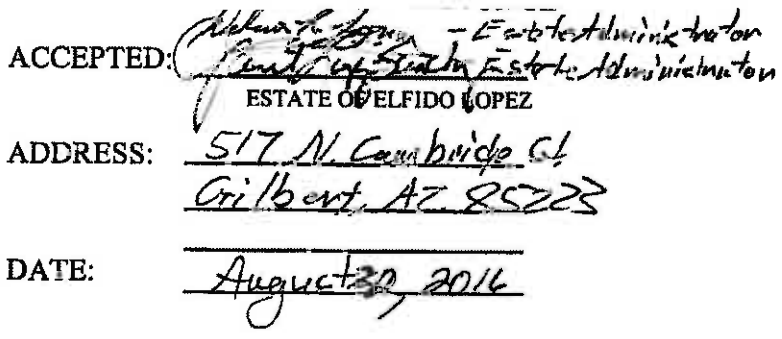 - Estate Administrator
ACCEPTED: Estate Administrator
ESTATE OF ELFIDO LOPEZ
ADDRESS: 517 N. Cambridge St
Gilbert, AZ 85223
DATE: August 30, 2016